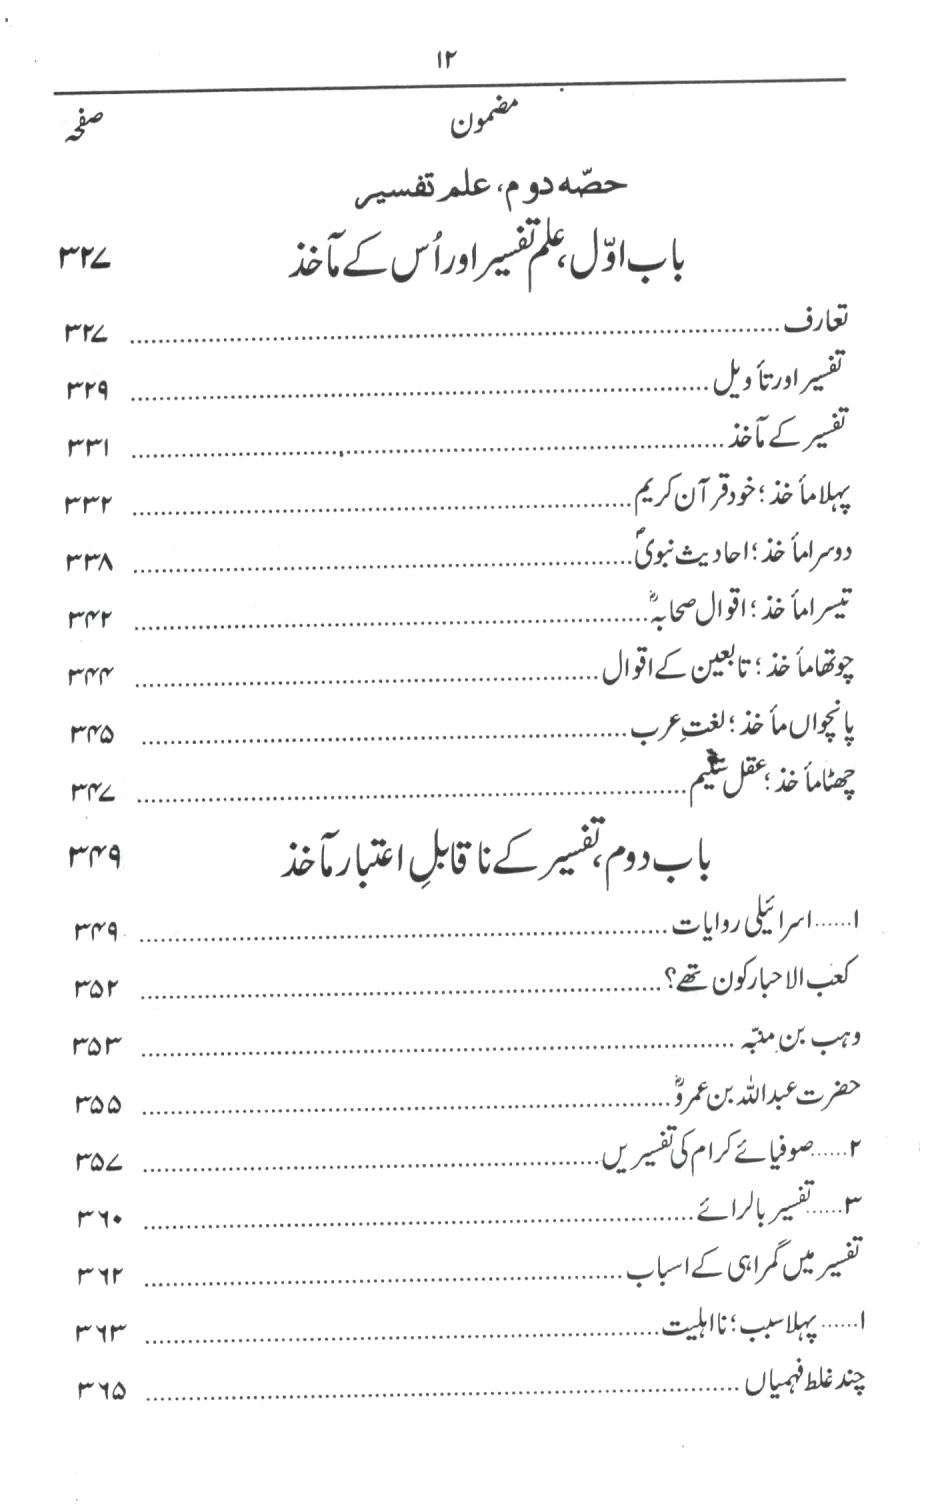 ۱۲
مضمون صفحہ
حصّہ دوم، علم تفسیر
باب اوّل، علم تفسیر اور اُس کے مآخذ ۳۲۷
تعارف ۳۲۷
تفسیر اور تأویل ۳۲۹
تفسیر کے مآخذ ۳۳۱
پہلا مأخذ؛ خود قرآن کریم ۳۳۲
دوسرا مأخذ؛ احادیث نبویؐ ۳۳۸
تیسرا مأخذ؛ اقوال صحابہؓ ۳۴۲
چوتھا مأخذ؛ تابعین کے اقوال ۳۴۴
پانچواں مأخذ؛ لغتِ عرب ۳۴۵
چھٹا مأخذ؛ عقل سلیم ۳۴۷
باب دوم، تفسیر کے ناقابلِ اعتبار مآخذ ۳۴۹
۱...... اسرائیلی روایات ۳۴۹
کعب الاحبار کون تھے؟ ۳۵۲
وہب بن منبّہ ۳۵۳
حضرت عبداللہ بن عمروؓ ۳۵۵
۲...... صوفیائے کرام کی تفسیریں ۳۵۷
۳...... تفسیر بالرائے ۳۶۰
تفسیر میں گمراہی کے اسباب ۳۶۲
۱...... پہلا سبب؛ نااہلیت ۳۶۳
چند غلط فہمیاں ۳۶۵